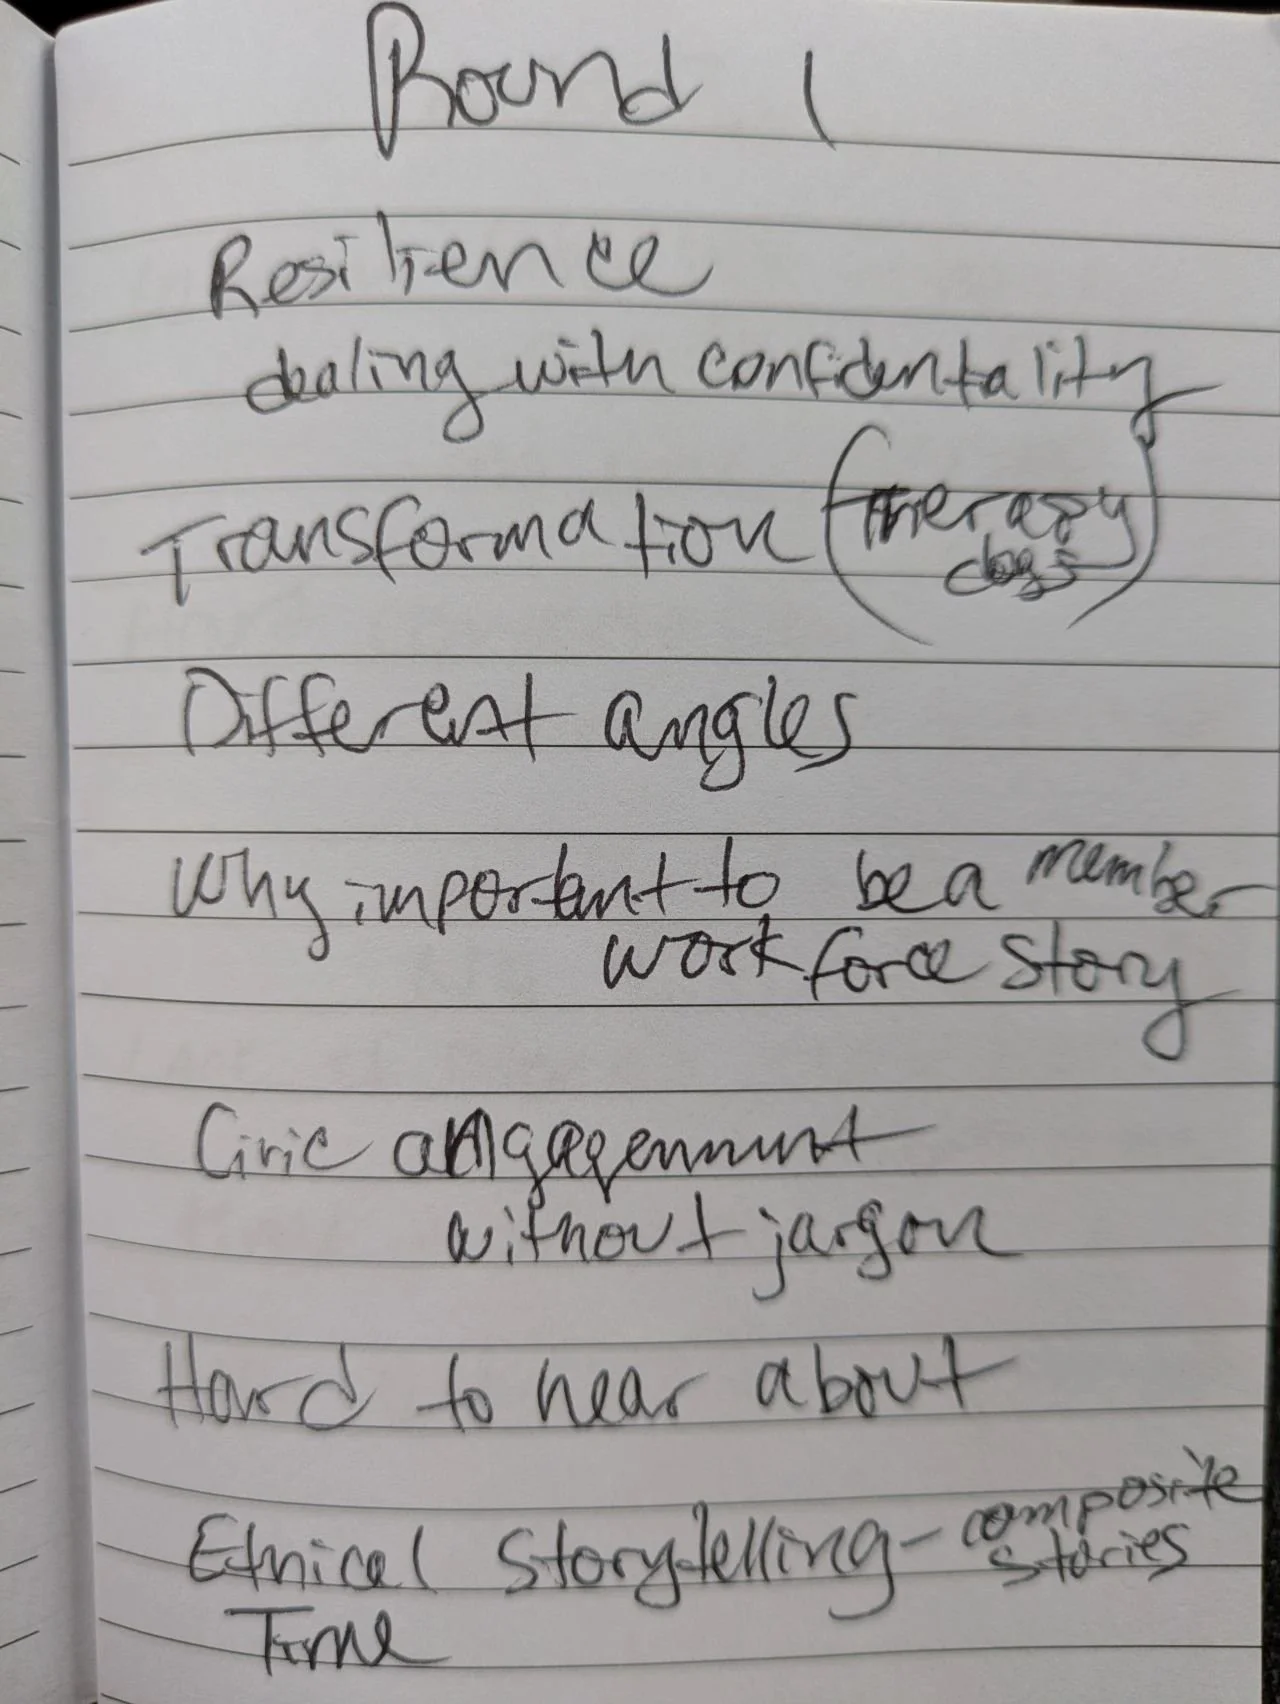 Round 1
Resilience
dealing with confidentality
Transformation (therapy
dogs)
Different angles
Why important to be a member
workforce story
Civic angagement
without jargon
Hard to hear about
Ethical storytelling - composite
stories
Time